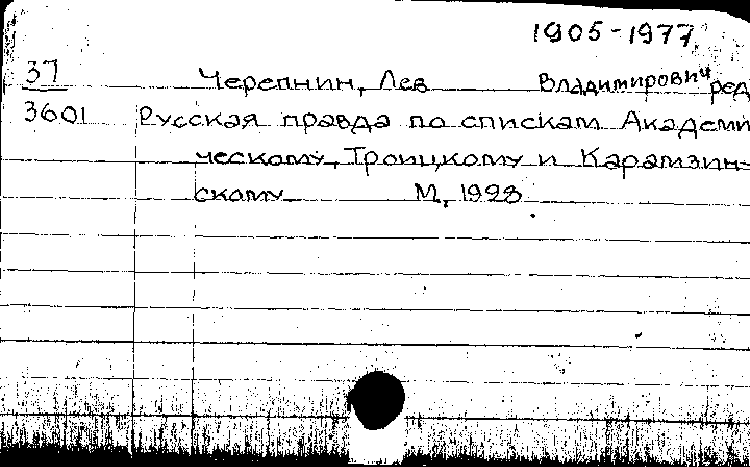 1905-1977
37 Черепнин, Лев Владимирович ред
3601 Русская правда по спискам Академи
ческому, Троицкому и Карамзин-
скому М, 1928